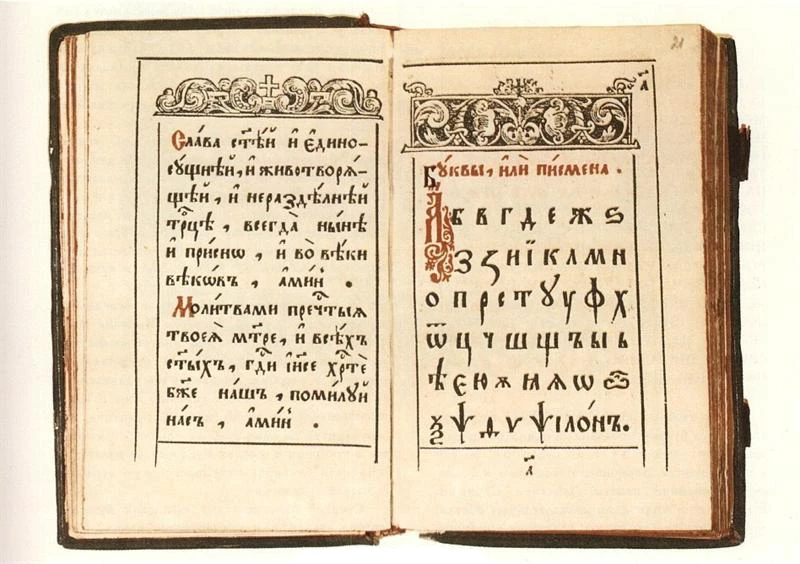 Сла́ва ст҃ѣ́й и҆ є҆дино-
су́щнѣй, и҆ животворѧ́-
щей, и҆ нераздѣ́лнѣй
трⷪ҇цѣ, всегда̀ ны́нѣ
и҆ при́снѡ, и҆ во̀ вѣ́ки
вѣкѡ́въ, а҆ми́нь.
Моли́твами пречⷭ҇тыѧ
твоеѧ̀ мт҃ре, и҆ всѣ́хъ
ст҃ы́хъ, гдⷭ҇и і҆и҃се хрⷭ҇тѐ
бж҃е на́шъ, поми́луй
на́съ, а҆ми́нь.
21
а҃
Бу́квы, и҆лѝ пи́смена.
А б в г д е ж ѕ
з ꙁ и ї к л м н
о п р с т ꙋ у ф х
ѿ ц ч ш щ ъ ы ь
ѣ є ю ѫ ѧ ꙗ ѡ
ѯ ѱ д ѵ ѱїло́нъ.
а҃